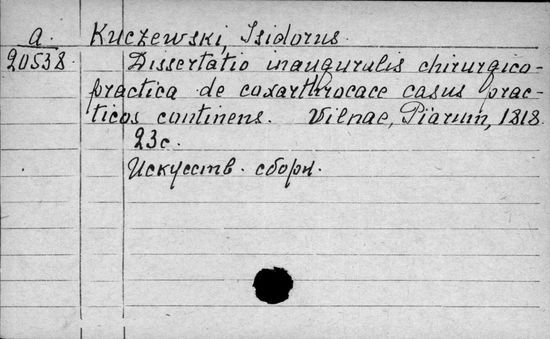 a. Kuczewski, Isidorus
20538. Dissertatio inauguralis chirurgico-
practica de coxarthrocace casus prac-
ticos continens. Vilnae, Piarum, 1818.
23c.
Искусств. сборн.